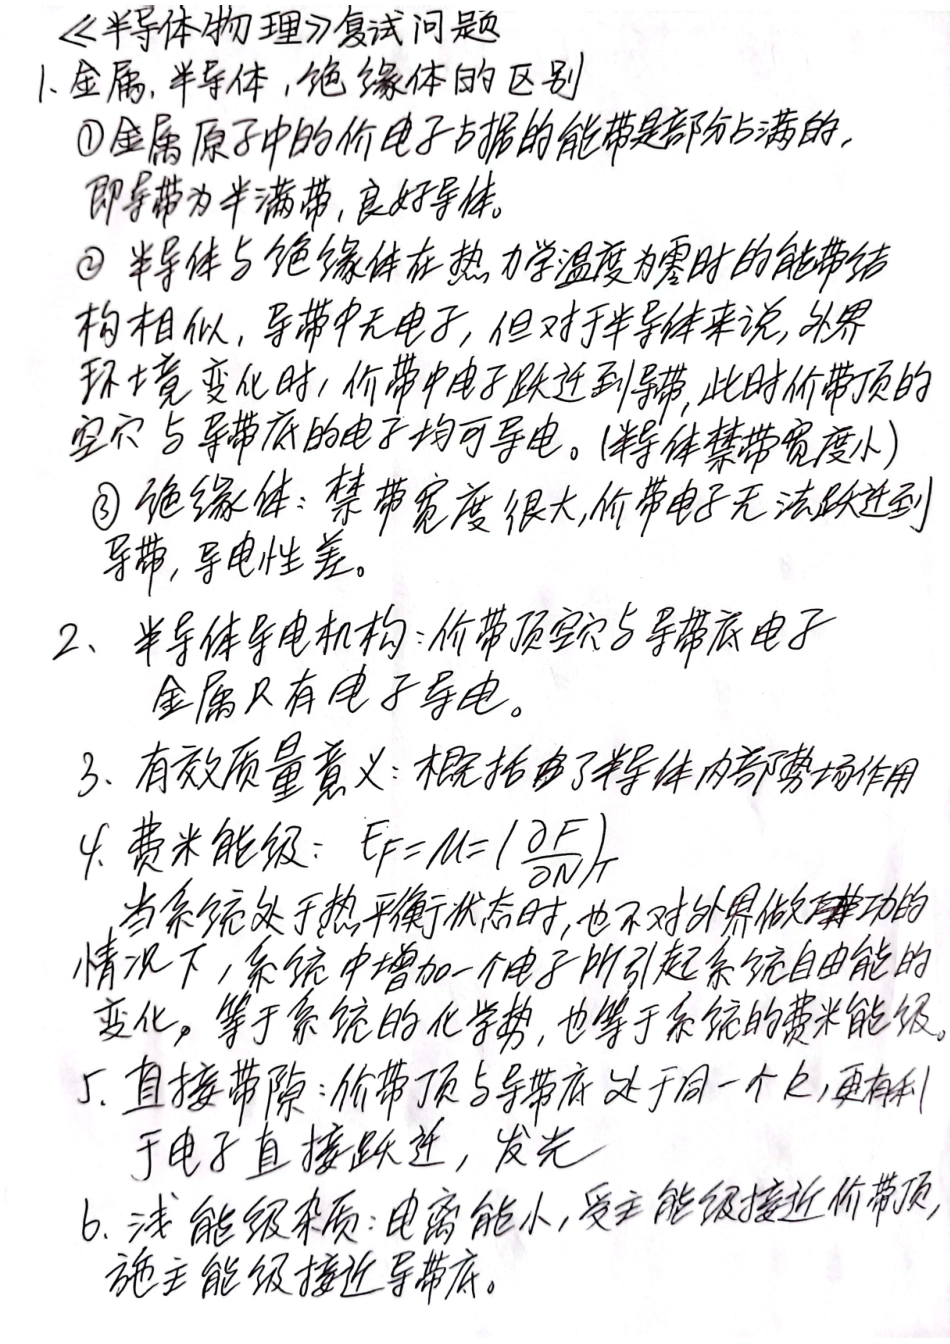 《半导体物理》复试问题
1.金属,半导体,绝缘体的区别
①金属原子中的价电子占据的能带是部分占满的,
即导带为半满带,良好导体。
② 半导体与绝缘体在热力学温度为零时的能带结
构相似,导带中无电子,但对于半导体来说,外界
环境变化时,价带中电子跃迁到导带,此时价带顶的
空穴与导带底的电子均可导电。(半导体禁带宽度小)
③ 绝缘体:禁带宽度很大,价带电子无法跃迁到
导带,导电性差。
2、半导体导电机构:价带顶空穴与导带底电子
金属只有电子导电。
3、有效质量意义:概括了半导体内部势场作用
4.费米能级: E_F=μ=(∂F/∂N)_T
当系统处于热平衡状态时,也不对外界做功的
情况下,系统中增加一个电子所引起系统自由能的
变化,等于系统的化学势,也等于系统的费米能级。
5.直接带隙:价带顶与导带底处于同一个K,更有利
于电子直接跃迁,发光
6.浅能级杂质:电离能小,受主能级接近价带顶,
施主能级接近导带底。